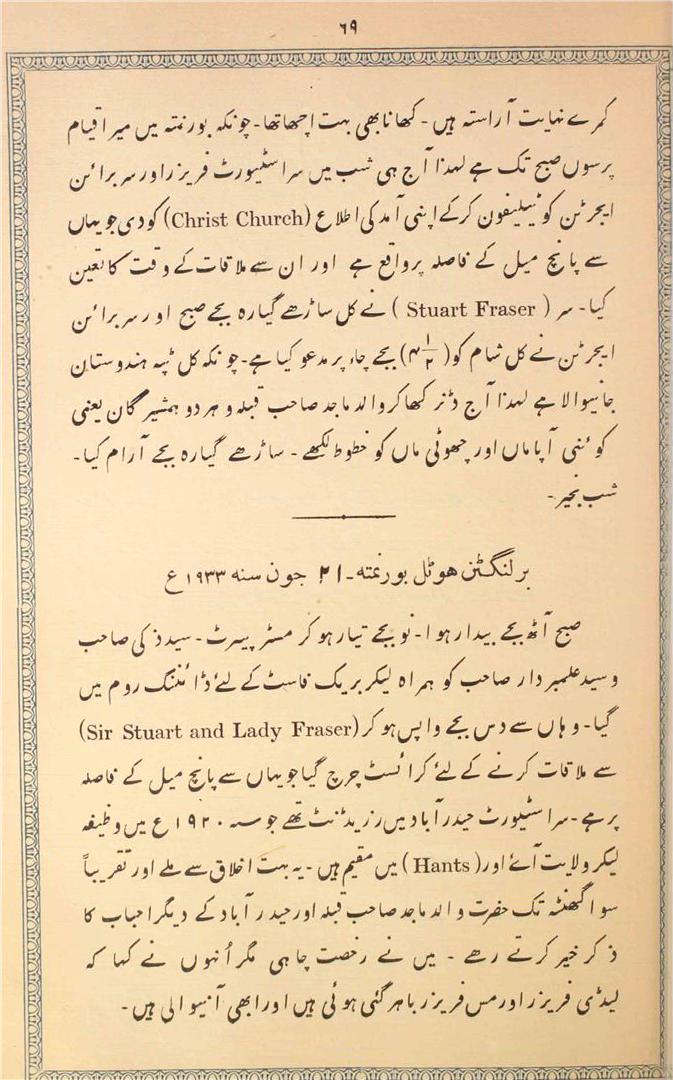 ٦٩
کمرے نہایت آراستہ ہیں ۔ کھانا بھی بہت اچھا تھا ۔ چونکہ بورنمتہ میں میرا قیام
پرسوں صبح تک ہے لہذا آج ہی شب میں سر اسٹیورٹ فریزر اور سر برائن
ایجرٹن کو ٹیلیفون کرکے اپنی آمد کی اطلاع (Christ Church) کو دی جو یہاں
سے پانچ میل کے فاصلہ پر واقع ہے اور ان سے ملاقات کے وقت کا تعین
کیا ۔ سر ( Stuart Fraser ) نے کل ساڑھے گیارہ بجے صبح اور سر برائن
ایجرٹن نے کل شام کو ( ۴ ۱/۲ ) بجے چاء پر مدعو کیا ہے ۔ چونکہ کل ٹپہ ہندوستان
جانیوالا ہے لہذا آج ڈنر کھا کر والد ماجد صاحب قبلہ و ہر دو ہمشیرگان یعنی
کوئنی آپا ماں اور چھوٹی ماں کو خطوط لکھے ۔ ساڑھے گیارہ بجے آرام کیا ۔
شب بخیر ۔
برلنگٹن ھوٹل بورنمتہ ۔ ۲۱ جون سنہ ۱۹۳۳ ع
صبح آٹھ بجے بیدار ہوا ۔ نو بجے تیار ہو کر مسٹر پیرٹ ۔ سید ذکی صاحب
و سید علمبردار صاحب کو ہمراہ لیکر بریک فاسٹ کے لئے ڈائننگ روم میں
گیا ۔ وہاں سے دس بجے واپس ہو کر (Sir Stuart and Lady Fraser)
سے ملاقات کرنے کے لئے کرائسٹ چرچ گیا جو یہاں سے پانچ میل کے فاصلہ
پر ہے ۔ سر اسٹیورٹ حیدرآباد میں رزیڈنٹ تھے جو سنہ ۱۹۲۰ ع میں وظیفہ
لیکر ولایت آئے اور ( Hants ) میں مقیم ہیں ۔ یہ بہت اخلاق سے ملے اور تقریباً
سوا گھنٹہ تک حضرت والد ماجد صاحب قبلہ اور حیدرآباد کے دیگر احباب کا
ذکر خیر کرتے رہے ۔ میں نے رخصت چاہی مگر اُنہوں نے کہا کہ
لیڈی فریزر اور مس فریزر باہر گئی ہوئی ہیں اور ابھی آنیوالی ہیں ۔